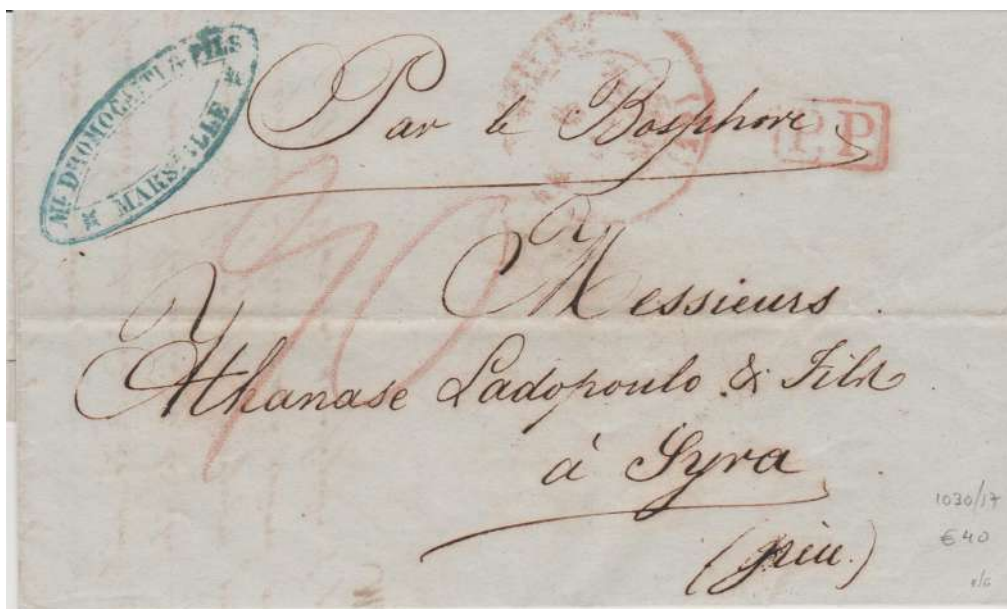 DROMOCAITI & FILS
MARSEILLE
Par le Bosphore
P.P
Messieurs
Athanase Ladopoulo & Fils
à Syra
1030/17
€40